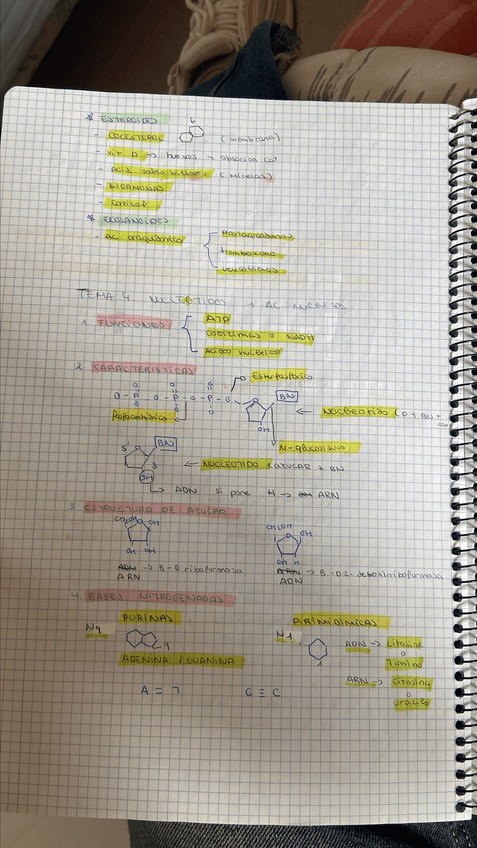 * ESTEROIDES
- COLESTEROL (membrana)
- Vit. D → huesos + absorción Ca+
- Ácid. sales biliares (micelas)
- HORMONAS
- Cortisol
* EICOSANOIDES
- AC. araquidónico
Prostaglandinas
tromboxano
leucotrienos
TEMA 4 NUCLEÓTIDOS + AC NUCLEICOS
1. FUNCIONES
ATP
Coenzimas o NADH
Ácidos nucleicos
2. CARACTERÍSTICAS
Ester fosfórico
O - P - O - P - O - P - O
BN
OH
Fosfoanhídrico
← NUCLEOTIDO (P + BN +
N-glucosídico
5' BN
3
OH
← NUCLEOTIDO (AZUCAR + BN
→ ADN si pone H → ARN
3. ESTRUCTURA DE AZUCAR
CH2OH OH
OH OH
CH2OH OH
OH H
ADN → B-D ribofuranosa
ARN
ARN → B-D-2-desoxirribofuranosa
ADN
4. BASES NITROGENADAS
PURINAS
N9
9
ADENINA / GUANINA
PIRIMIDÍNICAS
N1
1
ADN → Citosina
o
Timina
ARN → Citosina
o
uracilo
A = T G ≡ C